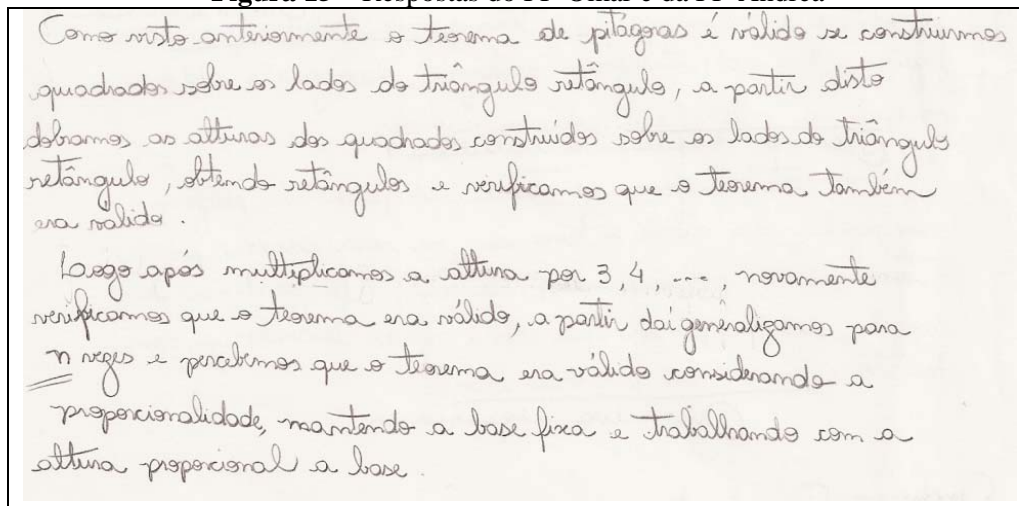 Como visto anteriormente o teorema de pitágoras é válido se construirmos
quadrados sobre os lados do triângulo retângulo, a partir disto
dobramos as alturas dos quadrados construídos sobre os lados do triângulo
retângulo, obtendo retângulos e verificamos que o teorema também
era válido.
Logo após multiplicamos a altura por 3, 4, ..., novamente
verificamos que o teorema era válido, a partir daí generalizamos para
n vezes e percebemos que o teorema era válido considerando a
proporcionalidade, mantendo a base fixa e trabalhando com a
altura proporcional a base.